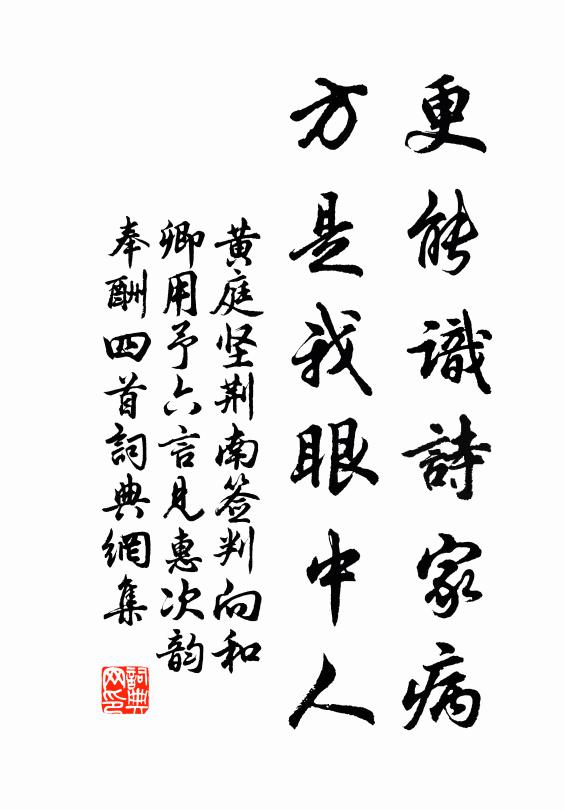 更能識詩家病
方是我眼中人
黄庭坚荆南签判向和
卿用予六言見惠次韵
奉酬四首詞典網集
詞典网印